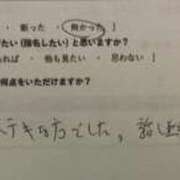 ・ 断った ・ 良かった ・ ]
たい (指名したい) と思いますか？
れば ・ 他も見たい ・ 思わない ]
何点をいただけますか？
ステキな方でした。 話し